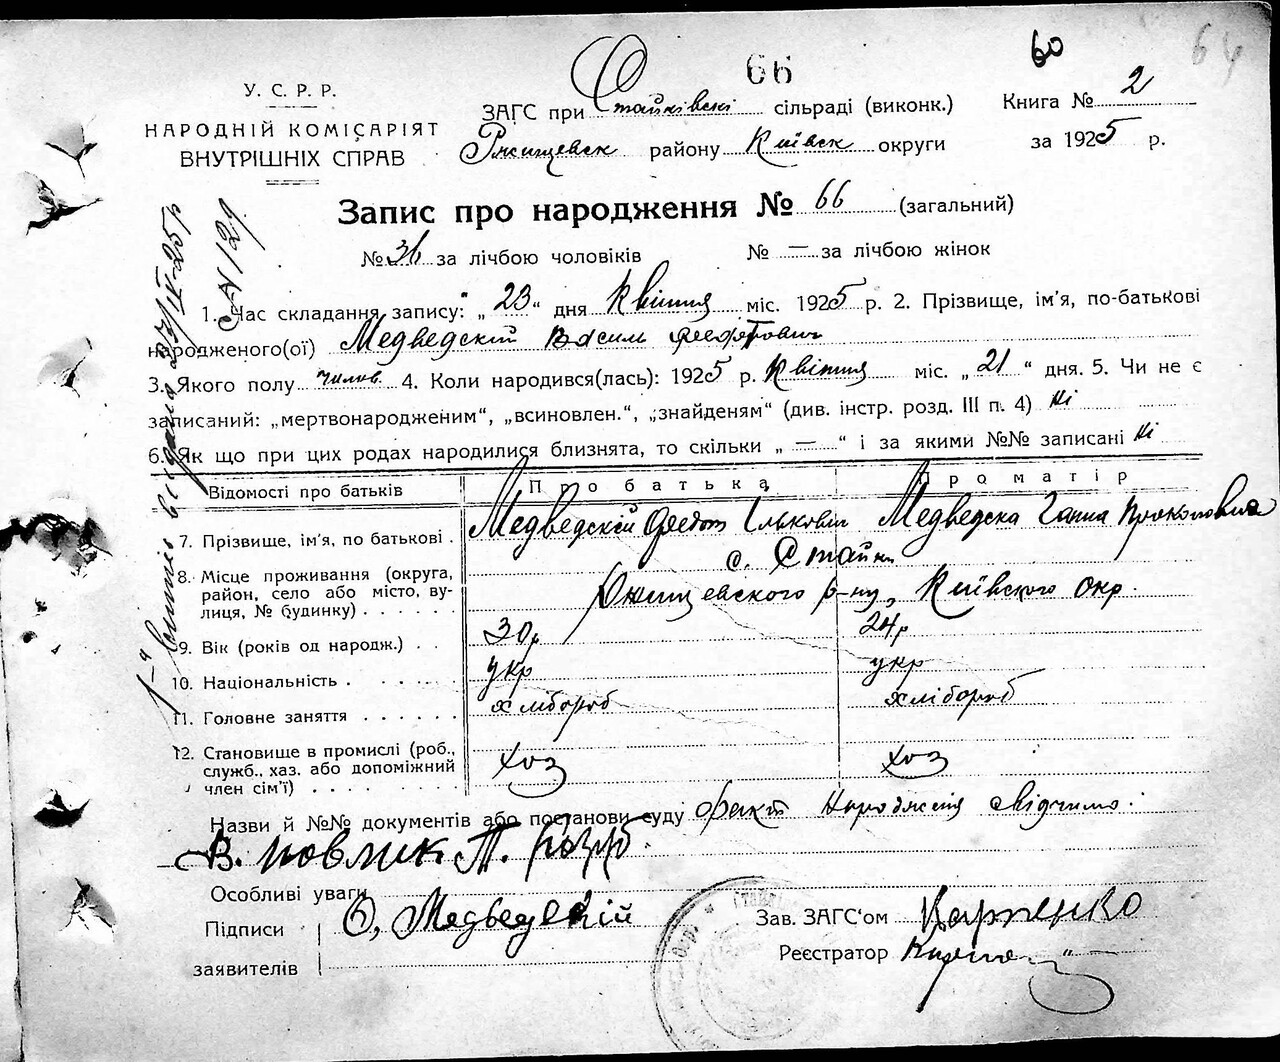 66
60
64
У. С. Р. Р.
НАРОДНІЙ КОМІСАРІЯТ
ВНУТРІШНІХ СПРАВ
ЗАГС при Стайківскі сільраді (виконк.)
Ржищевск району Київск округи
Книга № 2
за 1925 р.
Запис про народження № 66 (загальний)
№ 36 за лічбою чоловіків № — за лічбою жінок
1. Час складання запису: „23“ дня Квітня міс. 1925 р. 2. Прізвище, ім’я, по-батькові
народженого(ої) Медведскій Василь Феодотович
3. Якого полу чолов. 4. Коли народився(лась): 1925 р. Квітня міс. „21“ дня. 5. Чи не є
записаний: „мертвонародженим“, „всиновлен.“, „знайденям“ (див. інстр. розд. III п. 4) Ні
6. Як що при цих родах народилися близнята, то скільки „—“ і за якими №№ записані Ні
Відомості про батьків Про батька Про матір
7. Прізвище, ім’я, по батькові . Медведскій Федот Ільковіч Медведска Ганна Прокоповна
8. Місце проживання (округа, с. Стайки
район, село або місто, ву- Ржищевского р-ну, Київского окр.
лиця, № будинку) . . . . .
9. Вік (років од народж.) . . 30р 24р
10. Національність . . . . . укр укр
11. Головне заняття . . . . . . хлібороб хлібороб
12. Становище в промислі (роб., хоз хоз
служб., хаз. або допоміжний
член сім’ї) . . . . . . . .
Назви й №№ документів або постанови суду факт народженія свідчимо:
В. Повлик Т.
Особливі уваги
Підписи Ф, Медведскій
заявителів
Зав. ЗАГС‘ом Карпенко
Реєстратор